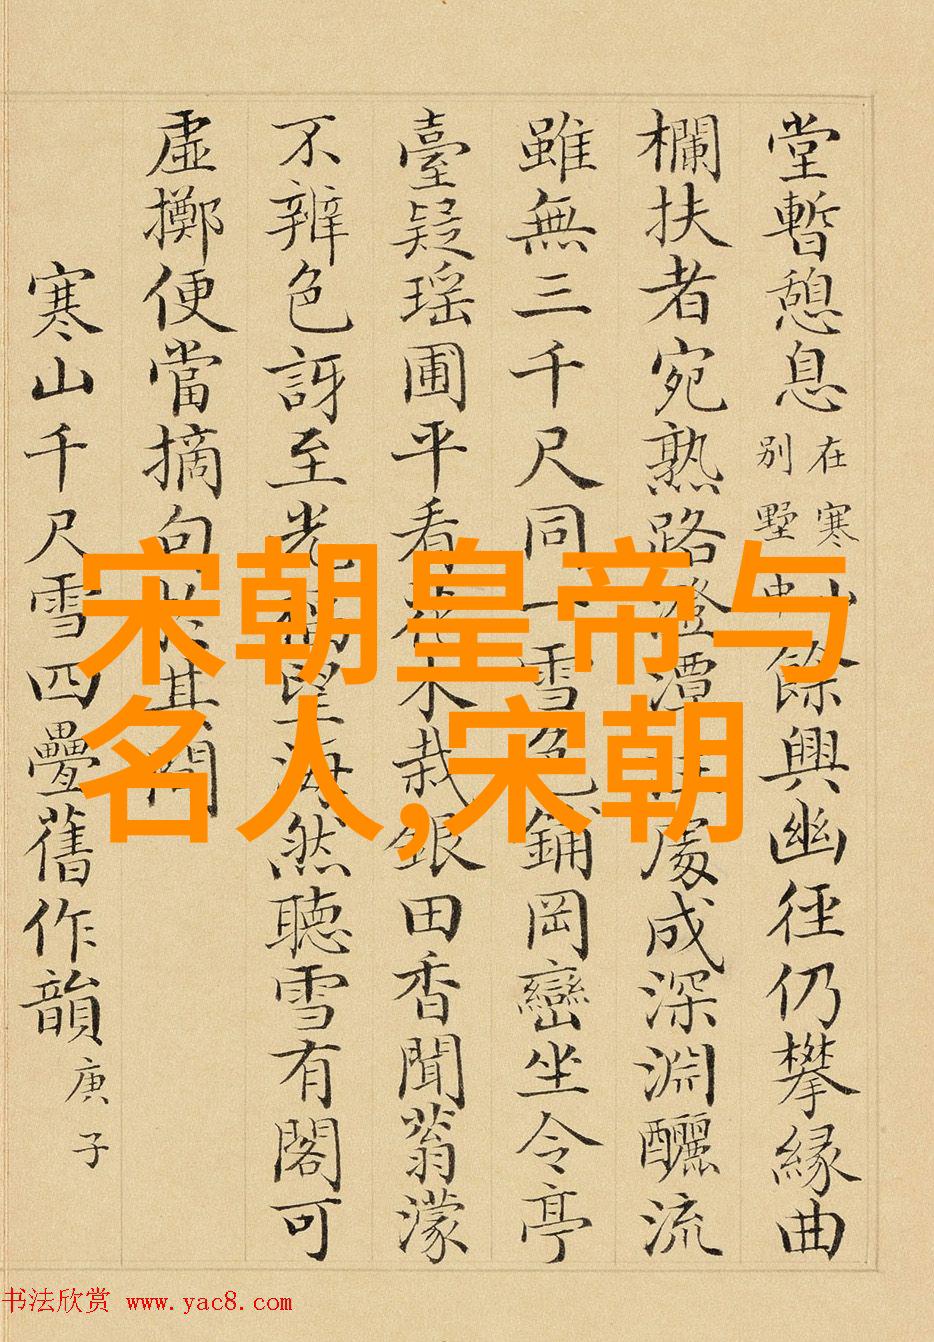 堂暫憩息在寒山別墅中餘興幽徑仍攀緣曲
欄扶者宛熟路澄潭處成深淵釃流
雖無三千尺同一雪色鋪岡巒坐令亭
臺疑瑤圃平看花木栽銀田香聞蓊濛
不辨色訝至光望海然聽雪有閣可
虛擲便當摘句於其間
寒山千尺雪四疊舊作韻庚子
宋朝皇帝与
名人,宋朝
书法欣赏 www.yac8.com